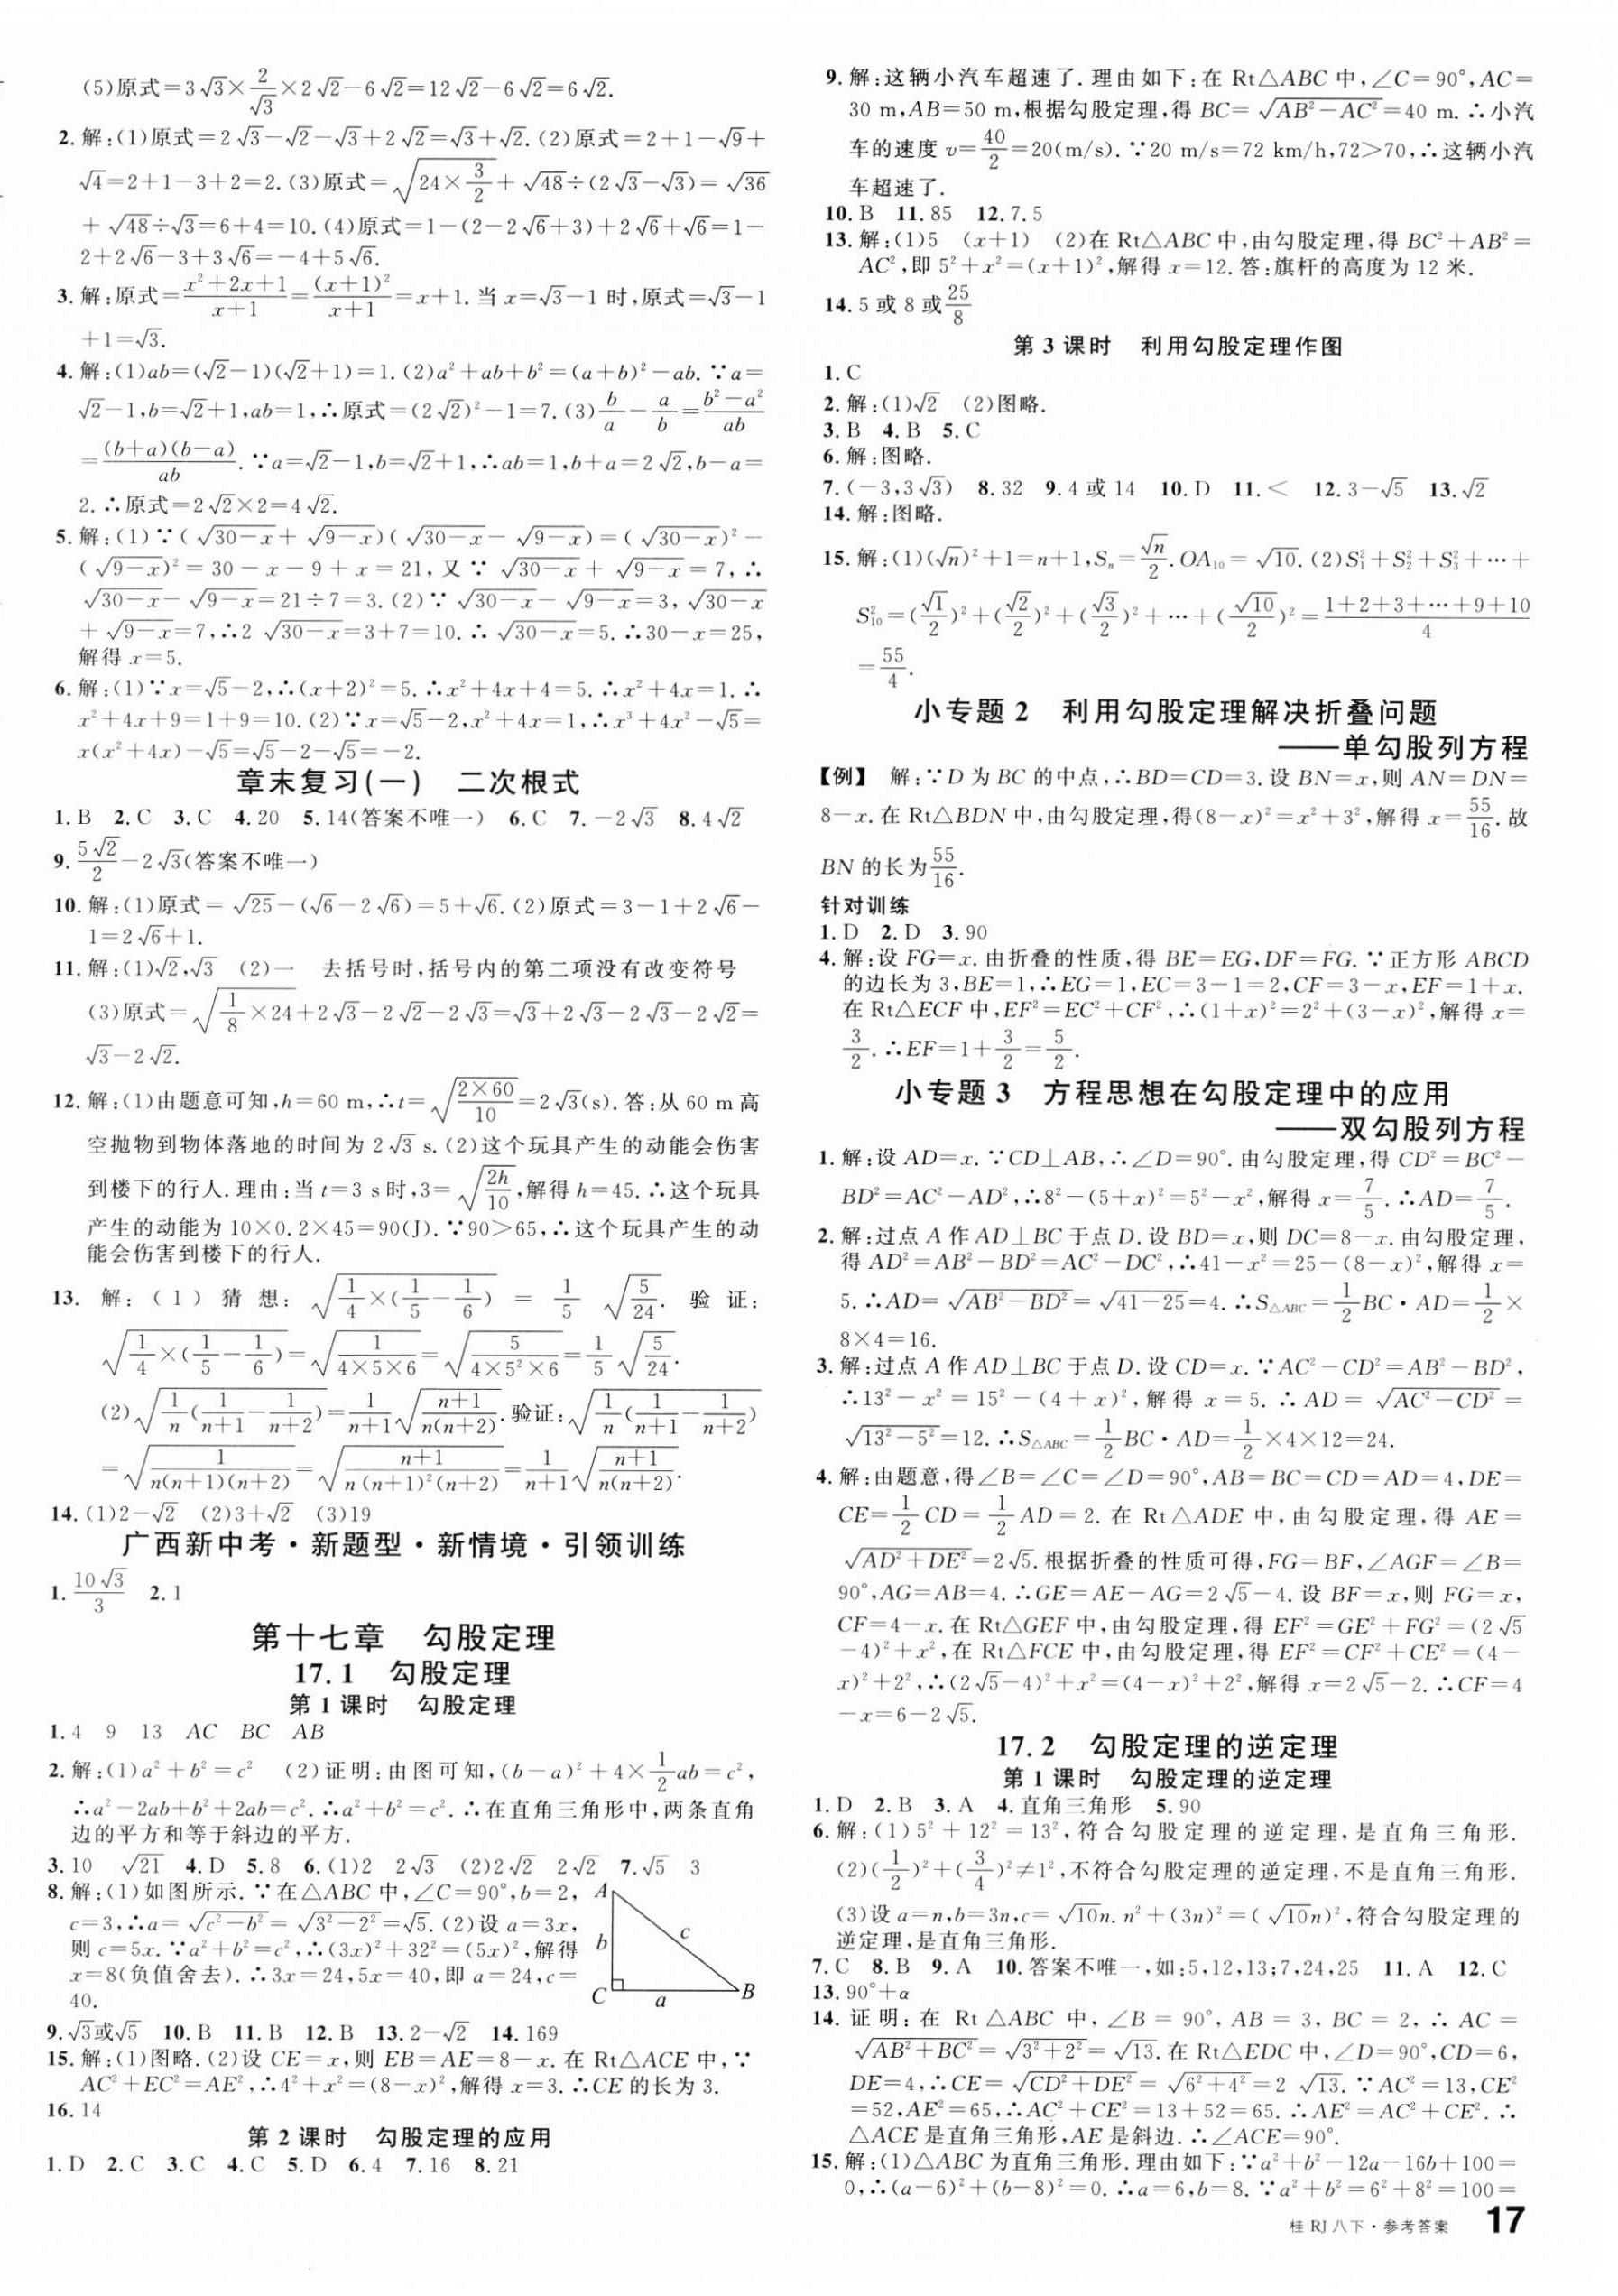 (5)原式=3√3×2/√3×2√2-6√2=12√2-6√2=6√2.
2.解:(1)原式=2√3-√2-√3+2√2=√3+√2.(2)原式=2+1-√9+
√4=2+1-3+2=2.(3)原式=√(24×3/2)+√48÷(2√3-√3)=√36
+√48÷√3=6+4=10.(4)原式=1-(2-2√6+3)+2√6+√6=1-
2+2√6-3+3√6=-4+5√6.
3.解:原式=(x²+2x+1)/(x+1)=(x+1)²/(x+1)=x+1.当x=√3-1时,原式=√3-1
+1=√3.
4.解:(1)ab=(√2-1)(√2+1)=1.(2)a²+ab+b²=(a+b)²-ab.∵a=
√2-1,b=√2+1,ab=1,∴原式=(2√2)²-1=7.(3)b/a-a/b=(b²-a²)/ab
=(b+a)(b-a)/ab.∵a=√2-1,b=√2+1,∴ab=1,b+a=2√2,b-a=
2.∴原式=2√2×2=4√2.
5.解:(1)∵(√(30-x)+√(9-x))(√(30-x)-√(9-x))=(√(30-x))²-
(√(9-x))²=30-x-9+x=21,又∵√(30-x)+√(9-x)=7,∴
√(30-x)-√(9-x)=21÷7=3.(2)∵√(30-x)-√(9-x)=3,√(30-x)
+√(9-x)=7,∴2√(30-x)=3+7=10.∴√(30-x)=5.∴30-x=25,
解得x=5.
6.解:(1)∵x=√5-2,∴(x+2)²=5.∴x²+4x+4=5.∴x²+4x=1.∴
x²+4x+9=1+9=10.(2)∵x=√5-2,x²+4x=1,∴x³+4x²-√5=
x(x²+4x)-√5=√5-2-√5=-2.
章末复习(一) 二次根式
1.B 2.C 3.C 4.20 5.14(答案不唯一) 6.C 7.-2√3 8.4√2
9.5√2/2-2√3(答案不唯一)
10.解:(1)原式=√25-(√6-2√6)=5+√6.(2)原式=3-1+2√6-
1=2√6+1.
11.解:(1)√2,√3 (2)一 去括号时,括号内的第二项没有改变符号
(3)原式=√(1/8×24)+2√3-2√2-2√3=√3+2√3-2√3-2√2=
√3-2√2.
12.解:(1)由题意可知,h=60 m,∴t=√(2×60/10)=2√3(s).答:从60 m高
空抛物到物体落地的时间为2√3 s.(2)这个玩具产生的动能会伤害
到楼下的行人.理由:当t=3 s时,3=√(2h/10),解得h=45.∴这个玩具
产生的动能为10×0.2×45=90(J).∵90>65,∴这个玩具产生的动
能会伤害到楼下的行人.
13.解:(1)猜想:√(1/4×(1/5-1/6))=1/5√(5/24).验证:
√(1/4×(1/5-1/6))=√(1/(4×5×6))=√(5/(4×5²×6))=1/5√(5/24).
(2)√(1/n(1/(n+1)-1/(n+2)))=1/(n+1)√((n+1)/(n(n+2))).验证:√(1/n(1/(n+1)-1/(n+2)))
=√(1/(n(n+1)(n+2)))=√((n+1)/(n(n+1)²(n+2)))=1/(n+1)√((n+1)/(n(n+2))).
14.(1)2-√2 (2)3+√2 (3)19
广西新中考·新题型·新情境·引领训练
1.10√3/3 2.1
第十七章 勾股定理
17.1 勾股定理
第1课时 勾股定理
1.4 9 13 AC BC AB
2.解:(1)a²+b²=c² (2)证明:由图可知,(b-a)²+4×1/2ab=c²,
∴a²-2ab+b²+2ab=c².∴a²+b²=c².∴在直角三角形中,两条直角
边的平方和等于斜边的平方.
3.10 √21 4.D 5.8 6.(1)2 2√3 (2)2√2 2√2 7.√5 3
8.解:(1)如图所示.∵在△ABC中,∠C=90°,b=2,
c=3,∴a=√(c²-b²)=√(3²-2²)=√5.(2)设a=3x,
则c=5x.∵a²+b²=c²,∴(3x)²+32²=(5x)²,解得
x=8(负值舍去).∴3x=24,5x=40,即a=24,c=
40.
A
b
c
C
a
B
9.√3或√5 10.B 11.B 12.B 13.2-√2 14.169
15.解:(1)图略.(2)设CE=x,则EB=AE=8-x.在Rt△ACE中,∵
AC²+EC²=AE²,∴4²+x²=(8-x)²,解得x=3.∴CE的长为3.
16.14
第2课时 勾股定理的应用
1.D 2.C 3.C 4.C 5.D 6.4 7.16 8.21
9.解:这辆小汽车超速了.理由如下:在Rt△ABC中,∠C=90°,AC=
30 m,AB=50 m,根据勾股定理,得BC=√(AB²-AC²)=40 m.∴小汽
车的速度v=40/2=20(m/s).∵20 m/s=72 km/h,72>70,∴这辆小汽
车超速了.
10.B 11.85 12.7.5
13.解:(1)5 (x+1) (2)在Rt△ABC中,由勾股定理,得BC²+AB²=
AC²,即5²+x²=(x+1)²,解得x=12.答:旗杆的高度为12米.
14.5或8或25/8
第3课时 利用勾股定理作图
1.C
2.解:(1)√2 (2)图略.
3.B 4.B 5.C
6.解:图略.
7.(-3,3√3) 8.32 9.4或14 10.D 11.< 12.3-√5 13.√2
14.解:图略.
15.解:(1)(√n)²+1=n+1,Sₙ=√n/2.OA₁₀=√10.(2)S₁²+S₂²+S₃²+…+
S₁₀²=(√1/2)²+(√2/2)²+(√3/2)²+…+(√10/2)²=(1+2+3+…+9+10)/4
=55/4.
小专题2 利用勾股定理解决折叠问题
——单勾股列方程
【例】 解:∵D为BC的中点,∴BD=CD=3.设BN=x,则AN=DN=
8-x.在Rt△BDN中,由勾股定理,得(8-x)²=x²+3²,解得x=55/16.故
BN的长为55/16.
针对训练
1.D 2.D 3.90
4.解:设FG=x.由折叠的性质,得BE=EG,DF=FG.∵正方形ABCD
的边长为3,BE=1,∴EG=1,EC=3-1=2,CF=3-x,EF=1+x.
在Rt△ECF中,EF²=EC²+CF²,∴(1+x)²=2²+(3-x)²,解得x=
3/2.∴EF=1+3/2=5/2.
小专题3 方程思想在勾股定理中的应用
——双勾股列方程
1.解:设AD=x.∵CD⊥AB,∴∠D=90°.由勾股定理,得CD²=BC²-
BD²=AC²-AD²,∴8²-(5+x)²=5²-x²,解得x=7/5.∴AD=7/5.
2.解:过点A作AD⊥BC于点D.设BD=x,则DC=8-x.由勾股定理,
得AD²=AB²-BD²=AC²-DC²,∴41-x²=25-(8-x)²,解得x=
5.∴AD=√(AB²-BD²)=√(41-25)=4.∴S△ABC=1/2BC·AD=1/2×
8×4=16.
3.解:过点A作AD⊥BC于点D.设CD=x.∵AC²-CD²=AB²-BD²,
∴13²-x²=15²-(4+x)²,解得x=5.∴AD=√(AC²-CD²)=
√(13²-5²)=12.∴S△ABC=1/2BC·AD=1/2×4×12=24.
4.解:由题意,得∠B=∠C=∠D=90°,AB=BC=CD=AD=4,DE=
CE=1/2CD=1/2AD=2.在Rt△ADE中,由勾股定理,得AE=
√(AD²+DE²)=2√5.根据折叠的性质可得,FG=BF,∠AGF=∠B=
90°,AG=AB=4.∴GE=AE-AG=2√5-4.设BF=x,则FG=x,
CF=4-x.在Rt△GEF中,由勾股定理,得EF²=GE²+FG²=(2√5
-4)²+x²,在Rt△FCE中,由勾股定理,得EF²=CF²+CE²=(4-
x)²+2²,∴(2√5-4)²+x²=(4-x)²+2²,解得x=2√5-2.∴CF=4
-x=6-2√5.
17.2 勾股定理的逆定理
第1课时 勾股定理的逆定理
1.D 2.B 3.A 4.直角三角形 5.90
6.解:(1)5²+12²=13²,符合勾股定理的逆定理,是直角三角形.
(2)(1/2)²+(3/4)²≠1²,不符合勾股定理的逆定理,不是直角三角形.
(3)设a=n,b=3n,c=√10n.n²+(3n)²=(√10n)²,符合勾股定理的
逆定理,是直角三角形.
7.C 8.B 9.A 10.答案不唯一,如:5,12,13;7,24,25 11.A 12.C
13.90°+α
14.证明:在Rt△ABC中,∠B=90°,AB=3,BC=2,∴AC=
√(AB²+BC²)=√(3²+2²)=√13.在Rt△EDC中,∠D=90°,CD=6,
DE=4,∴CE=√(CD²+DE²)=√(6²+4²)=2√13.∵AC²=13,CE²
=52,AE²=65,∴AC²+CE²=13+52=65.∴AE²=AC²+CE².∴
△ACE是直角三角形,AE是斜边.∴∠ACE=90°.
15.解:(1)△ABC为直角三角形.理由如下:∵a²+b²-12a-16b+100=
0,∴(a-6)²+(b-8)²=0.∴a=6,b=8.∵a²+b²=6²+8²=100=
桂RJ八下·参考答案 17